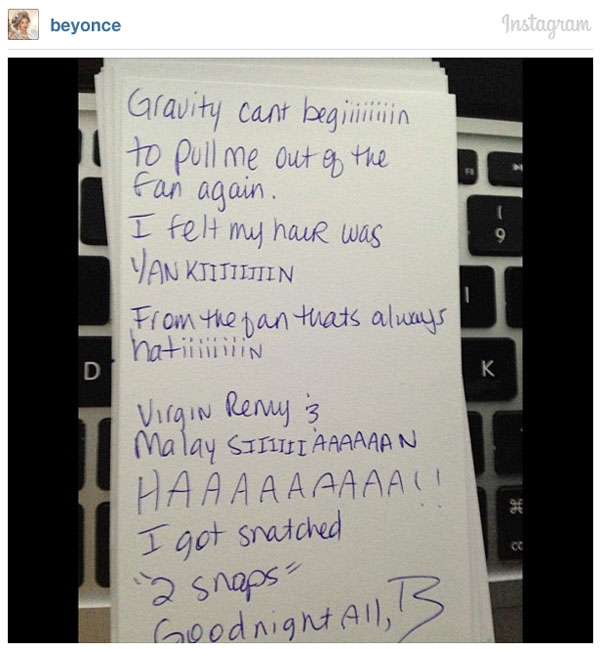 beyonce
Instagram
Gravity cant begiiiiiiiin
to pull me out of the
fan again.
I felt my haiR was
YANKIIIIIIIIN
From the fan thats always
hatiiiiiiiiiN
Virgin Remy &
MalaySIIIIIIAAAAAAN
HAAAAAAAAAA!!
I got snatched
"2 snaps"
Goodnight All, B
F8
(
9
I
D
K
⌘